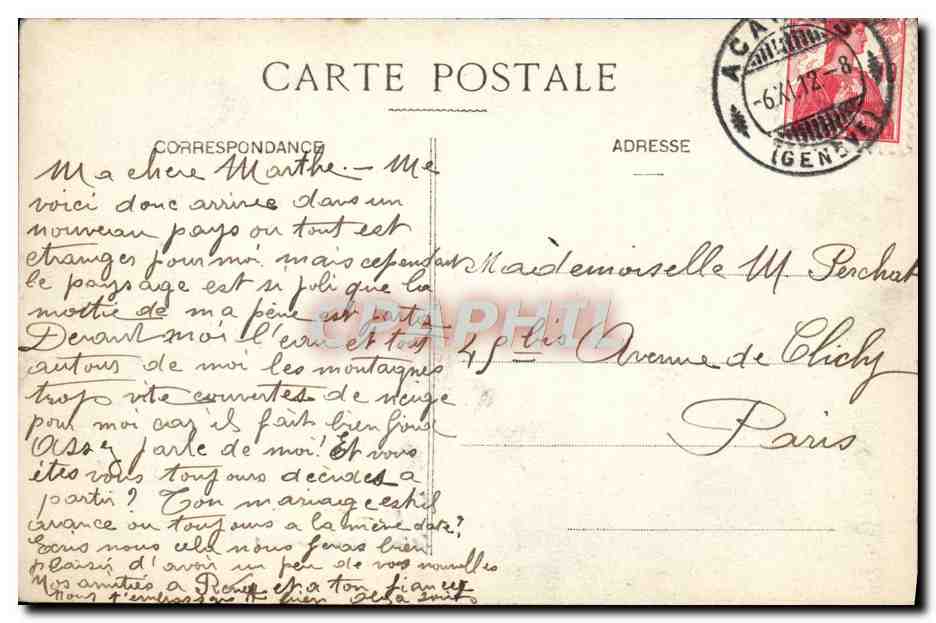 CARTE POSTALE
CORRESPONDANCE
ADRESSE
-6.XI.12.-8
(GENÈVE)
CPAPHIL
Ma chere Marthe. - Me
voici donc arrivée dans un
nouveau pays ou tout est
etranger pour moi mais cependant
le paysage est si joli que la
moitié de ma peine est partie
Devant moi l'eau et tout
autour de moi les montagnes
trop vite couvertes de neige
pour moi car il fait bien froid
Assez parlé de moi! Et vous
êtes vous toujours décides a
partir? Ton mariage est il
avance ou toujours a la même date?
Ecris nous cela nous feras bien
plaisir d'avoir un peu de vos nouvelles
Nos amitiés a René et a ton fiancé
Nous t'embrassons bien
Mademoiselle M. Perchat
45 bis Avenue de Clichy
Paris